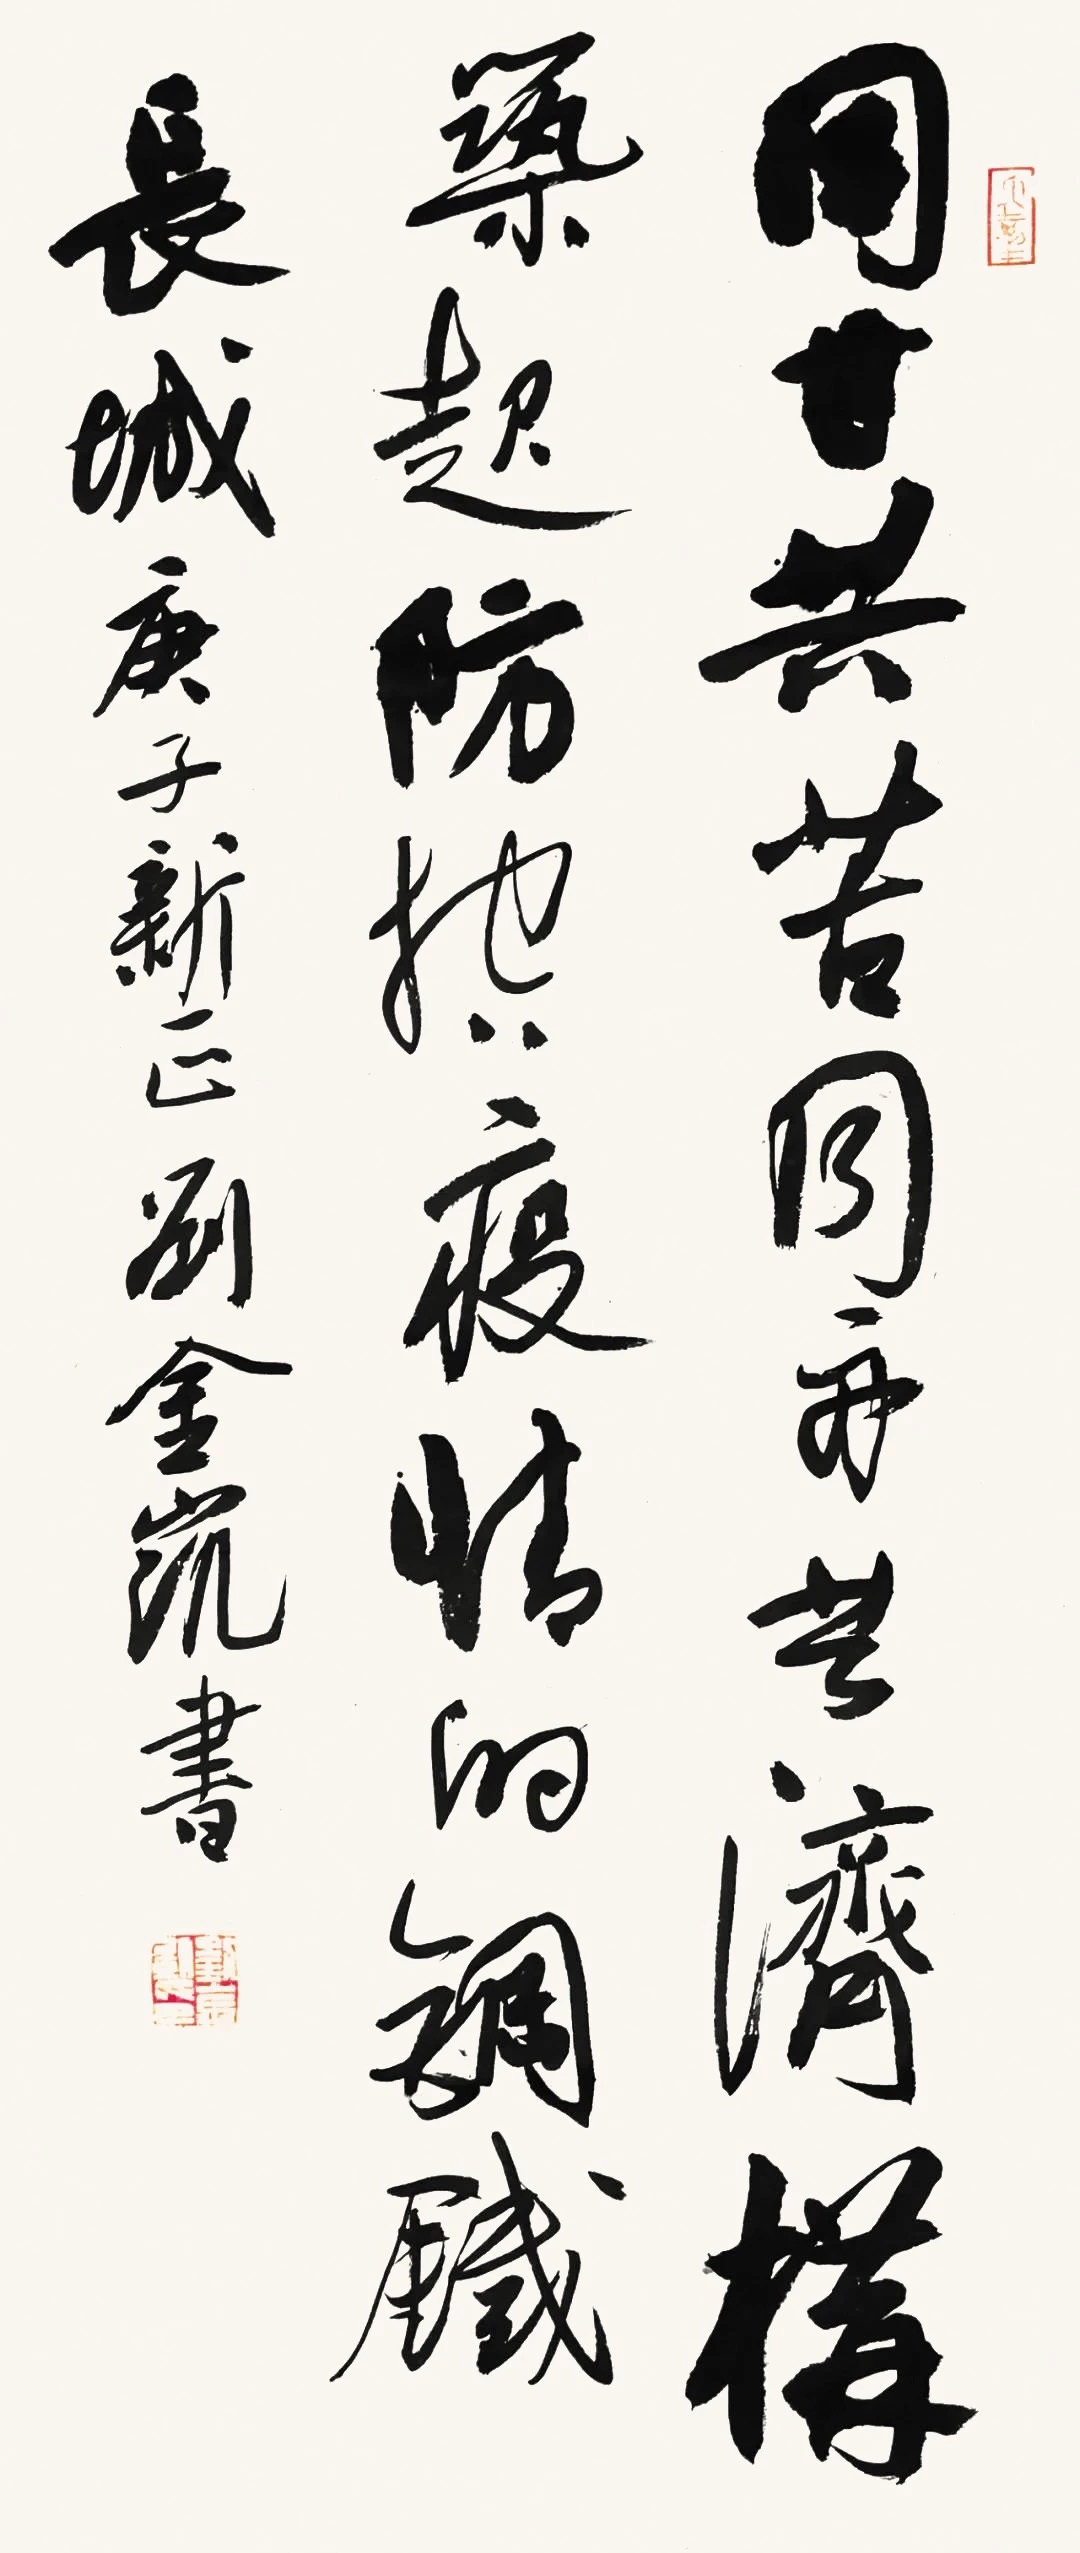 同甘共苦同舟共濟構
築起防控疫情的鋼鐵
長城 庚子新正 劉金書